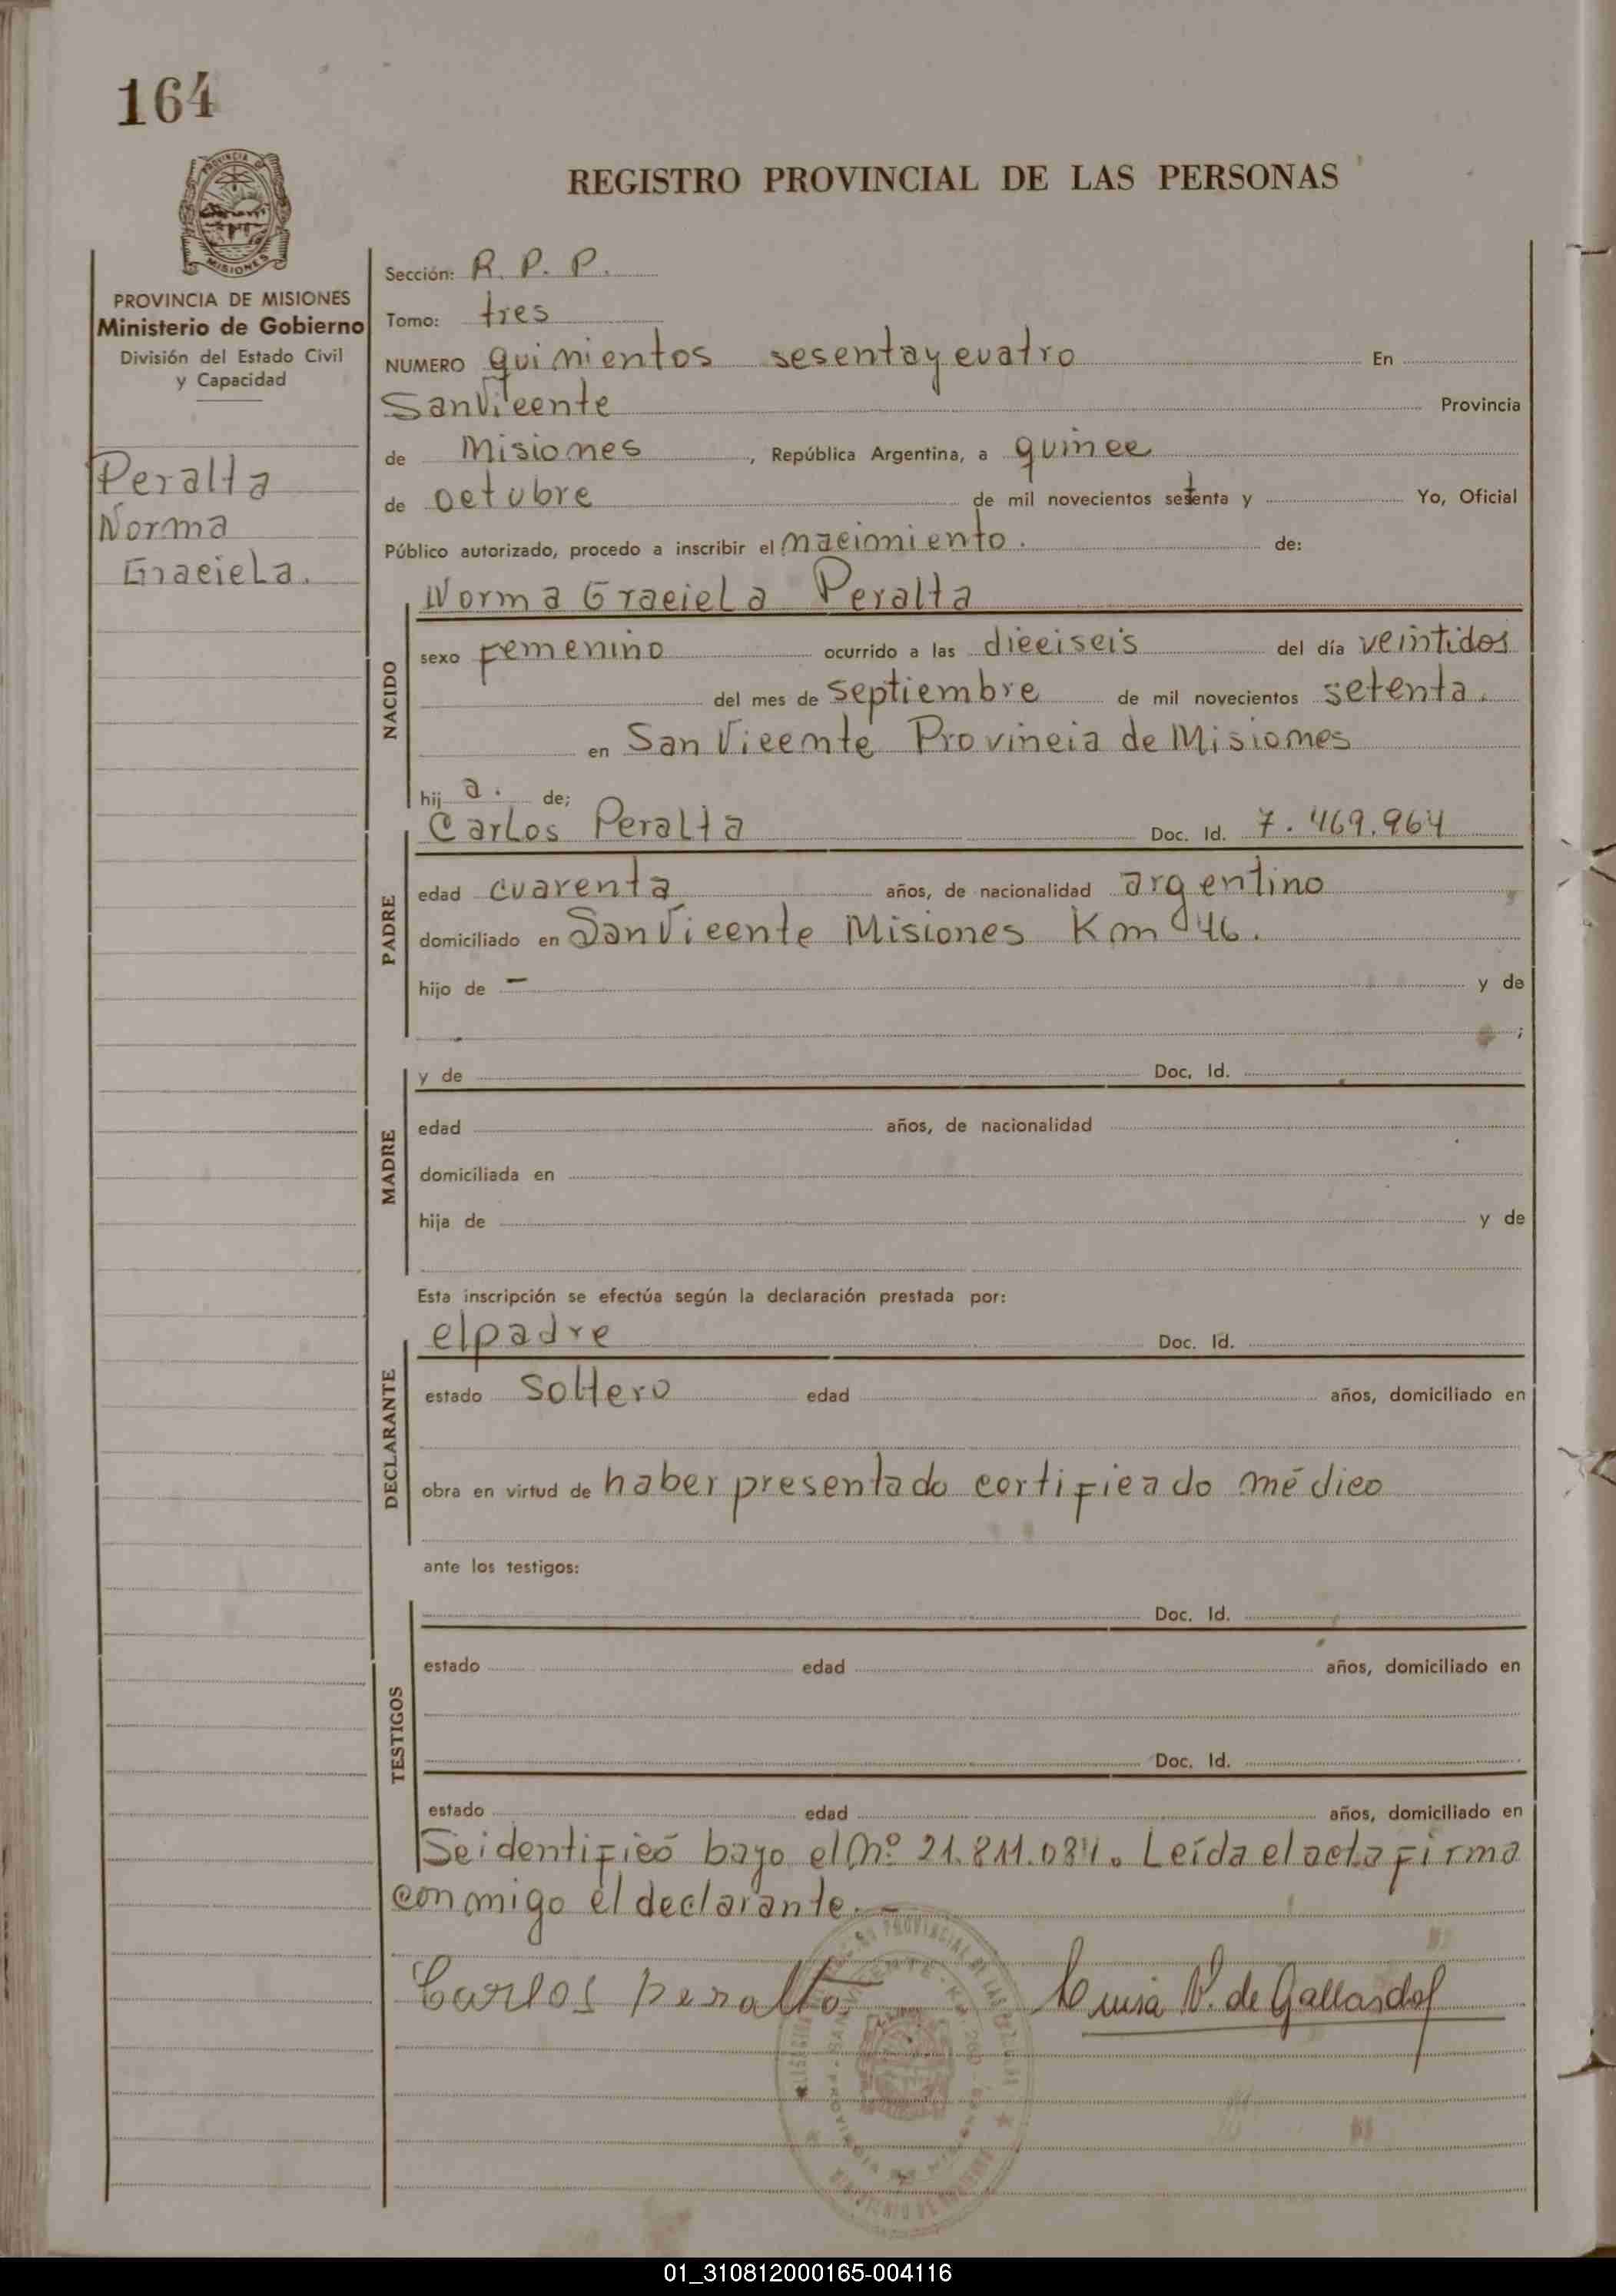 164
PROVINCIA DE
MISIONES
REGISTRO PROVINCIAL DE LAS PERSONAS
PROVINCIA DE MISIONES
Ministerio de Gobierno
División del Estado Civil
y Capacidad
Peralta
Norma
Graciela.
Sección: R. P. P.
Tomo: tres
NUMERO quinientos sesenta y cuatro En
San Vicente Provincia
de Misiones, República Argentina, a quince
de octubre de mil novecientos setenta y Yo, Oficial
Público autorizado, procedo a inscribir el nacimiento. de:
NACIDO
Norma Graciela Peralta
sexo femenino ocurrido a las dieciseis del día veintidos
del mes de septiembre de mil novecientos setenta.
en San Vicente Provincia de Misiones
hij a. de;
PADRE
Carlos Peralta Doc. Id. 7.469.964
edad cuarenta años, de nacionalidad argentino
domiciliado en San Vicente Misiones Km 46.
hijo de — y de
;
MADRE
y de Doc. Id.
edad años, de nacionalidad
domiciliada en
hija de y de
Esta inscripción se efectúa según la declaración prestada por:
DECLARANTE
el padre Doc. Id.
estado soltero edad años, domiciliado en
obra en virtud de haber presentado certificado médico
ante los testigos:
TESTIGOS
Doc. Id.
estado edad años, domiciliado en
Doc. Id.
estado edad años, domiciliado en
Se identificó bayo el nº 21.811.084. Leída el acta firma
conmigo el declarante.—
Carlos Peralta Luisa V. de Gallardo
01_310812000165-004116